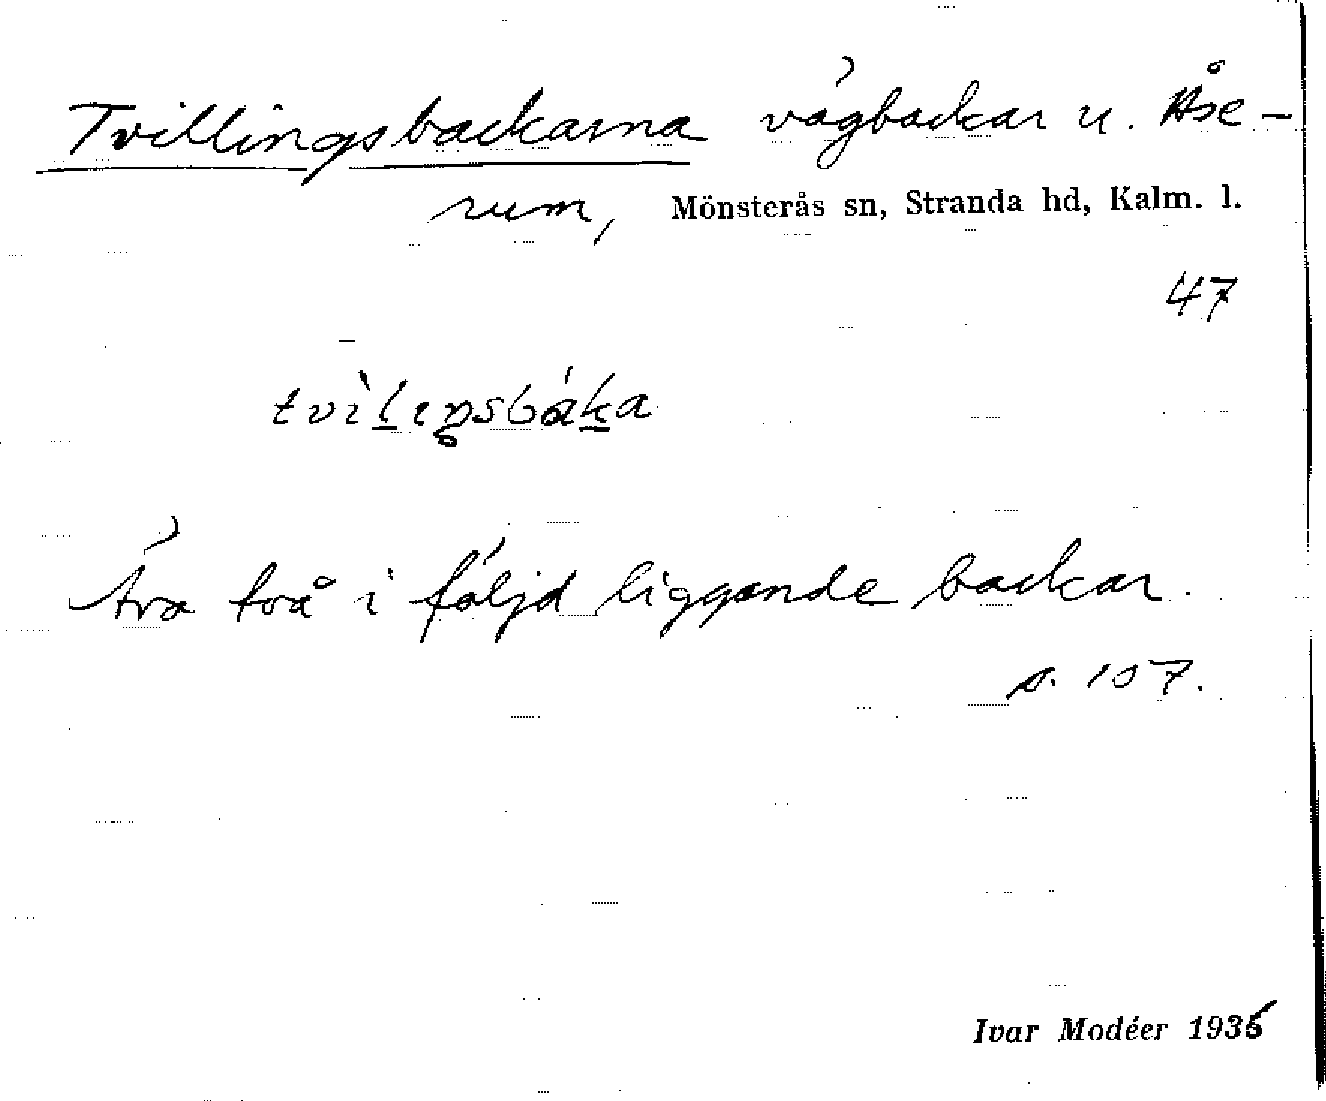 Tvillingsbackarna vägbackar u. Åse-
rum, Mönsterås sn, Stranda hd, Kalm. l.
47
tvìlıŋsbáka
Äro två i följd liggande backar.
s. 107.
Ivar Modéer 1936